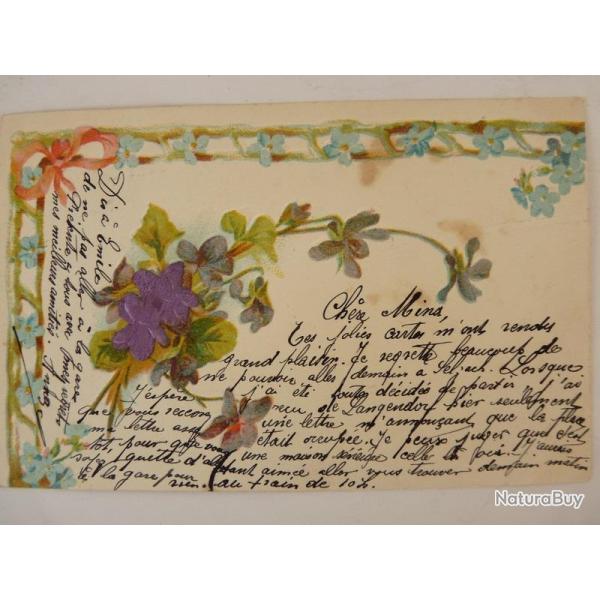 Chère Mina,
Tes jolies cartes m'ont rendu
grand plaisir. Je regrette beaucoup de
ne pouvoir aller demain à
j'ai été toutes décidés de partir j'ai
reçu de Langendorf hier seulement
une lettre m'annonçant que la place
était occupée. Je peux juger que c'est
une maison sérieuse celle là
autant aimée aller vous trouver demain matin
au train de 10 h.
J'espère
que vous recevrez
ma lettre assez
tôt, pour que vous
à la gare pour
rien.
Dis à Emile
de ne pas aller à la gare
Présente à tous vos
mes meilleurs amitiés. Anna
NaturaBuy